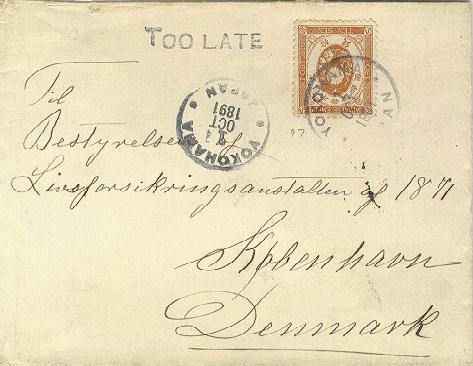 TOO LATE
YOKOHAMA
JAPAN
OCT
1891
YOKOHAMA
AN
Til
Bestyrelsen af
Livsforsikringsanstalten af 1871
København
Denmark